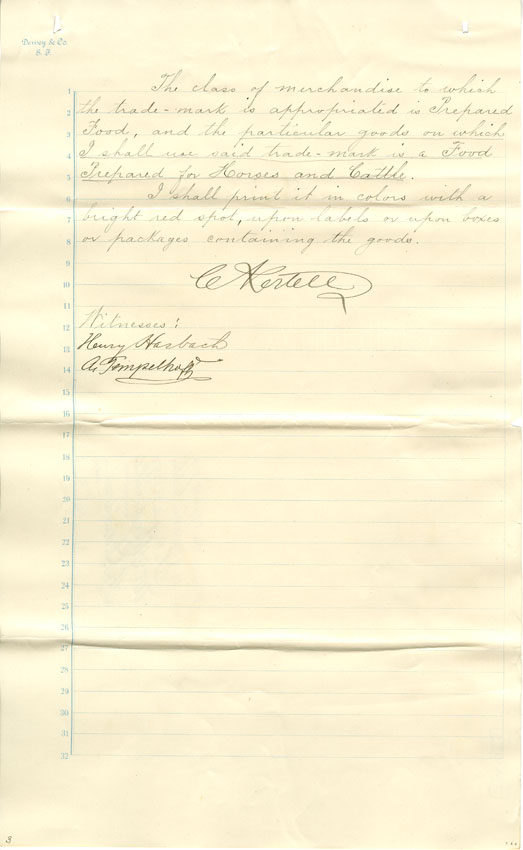 Dewey & Co
S. F.
1 The class of merchandise to which
2 the trade-mark is appropriated is Prepared
3 Food, and the particular goods on which
4 I shall use said trade-mark is a Food
5 Prepared for Horses and Cattle.
6 I shall print it in colors with a
7 bright red spot, upon labels or upon boxes
8 or packages containing the goods.
9
10 C Hertell
11
12 Witnesses:
13 Henry Hasbach
14 A. Tempelhoff
15
16
17
18
19
20
21
22
23
24
25
26
27
28
29
30
31
32
3